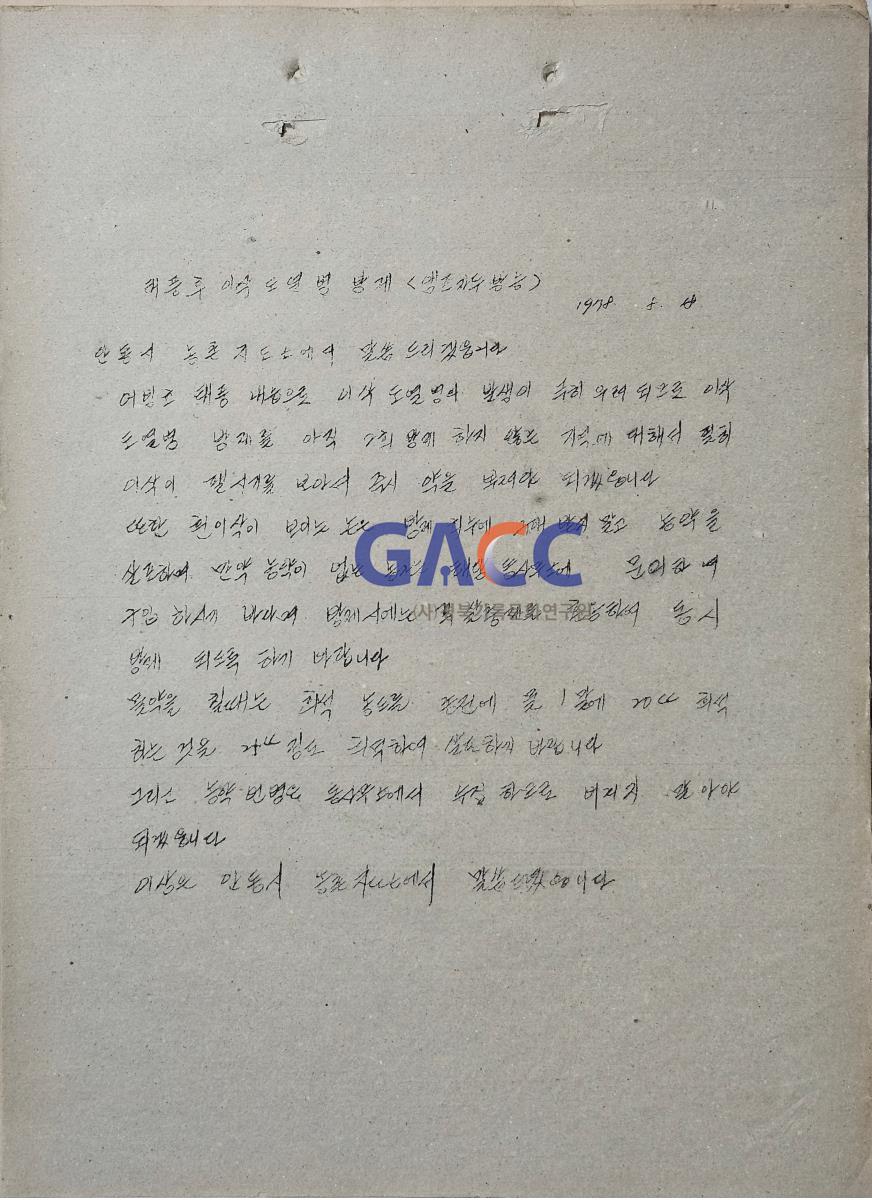 태풍후 이삭 도열병 방제 <앰프지도방송>
1978. 8.
안동시 농촌 지도소에서 말씀 드리겠읍니다
이삭 도열병의 발생이 특히 우려 되므로 이삭
도열병 방제를 아직 2회 방제 하지 않은 지역에 대해서 필히
이삭이 필 시기를 보아서 즉시 약을 뿌려야 되겠읍니다
또한 흰이삭이 보이는 논은 방제 말고 농약을
살포하여 만약 농약이 없는 문의하여
구입 하시기 바라며 방제시에는 동시
GACC
(사)경북기록문화연구원
방제 되도록 하기 바랍니다
물약을 칠때는 희석 농도를 물 1말에 20cc 희석
하는 것을 희석하여 살포하기 바랍니다
농약 빈병은 수집 하므로 버리지 말아야
되겠읍니다
이상은 안동시 농촌지도소에서 말씀드렸읍니다